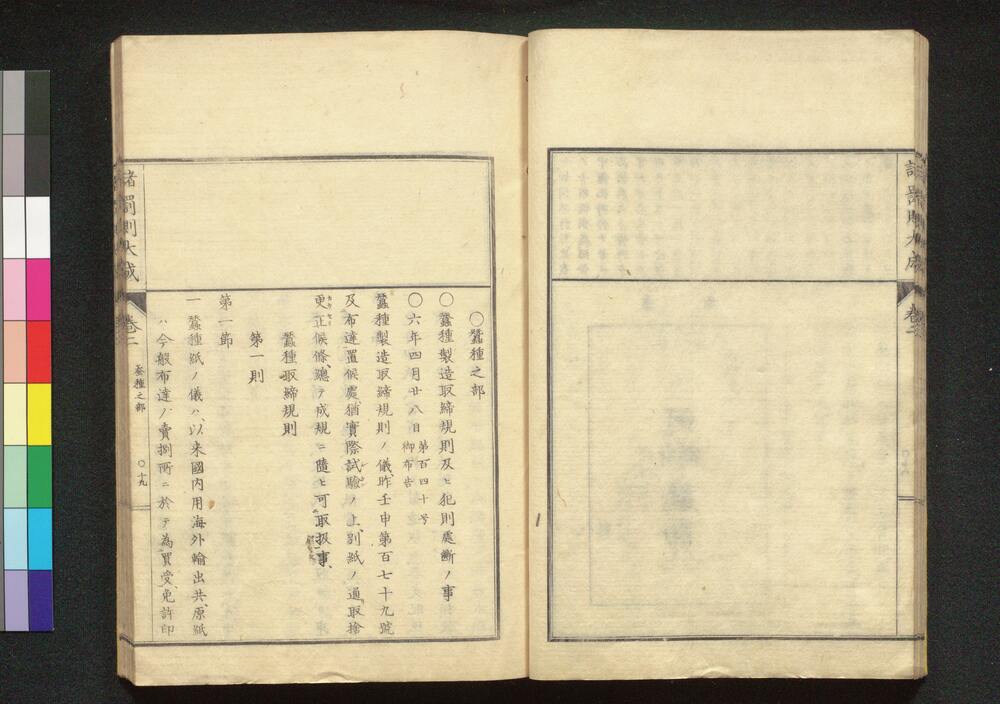 諸罰則大成
卷二
○蠶種之部
○蠶種製造取締規則及ヒ犯則處斷ノ事
○六年四月廿八日 第百四十号 御布告
蠶種製造取締規則ノ儀昨壬申第百七十九號
及布達置候處猶實際試驗ノ上別紙ノ通取捨
更正候條總テ成規ニ隨ヒ可取扱事
蠶種取締規則
第一則
第一節
一 蠶種紙ノ儀ハ以来國内用海外輸出共原紙
ハ今般布達ノ賣捌所ニ於テ為買受免許印
諸罰則大成
卷二
蚕種之部
○十九